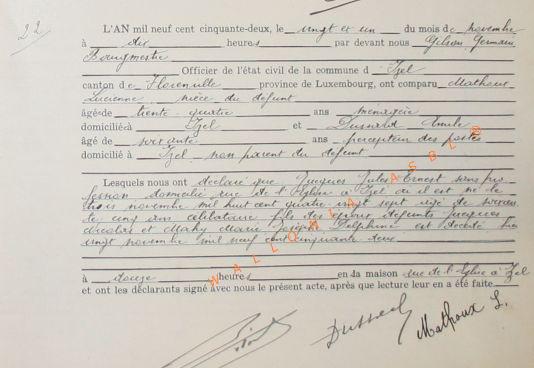 22
L'AN mil neuf cent cinquante-deux, le vingt et un du mois de novembre
à dix heures par devant nous Gilson Germain
Bourgmestre
Officier de l'état civil de la commune d'Izel
canton de Florenville province de Luxembourg, ont comparu Mathoux
Lucienne nièce du défunt
âgés de trente quatre ans ménagère
domicilié à Izel et Dussard Emile
âgé de soixante ans percepteur des postes
domicilié à Izel non parent du défunt
Lesquels nous ont déclaré que Jacques Jules Ernest sans pro-
fession domicilié rue de l'Eglise à Izel où il est né le
trois novembre mil huit cent quatre vingt sept âgé de soixan
te cinq ans célibataire fils des époux défunts Jacques
Nicolas et Mahy Marie Joseph Delphine est décédé hier
vingt novembre mil neuf cent cinquante deux
à douze heures en la maison rue de l'Eglise à Izel
et ont les déclarants signé avec nous le présent acte, après que lecture leur en a été faite.
Dussard
Mathoux L.
WALLONIA ASBL ©